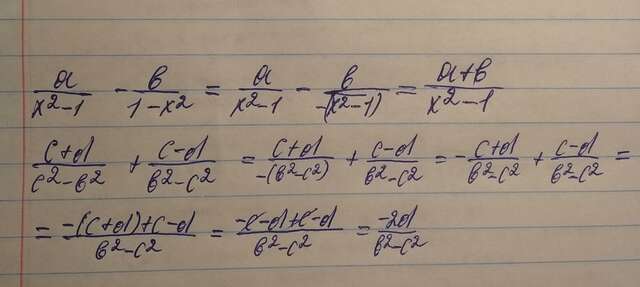 a/(x²-1) - в/(1-x²) = a/(x²-1) - в/(-(x²-1)) = (a+в)/(x²-1)
(c+d)/(c²-в²) + (c-d)/(в²-c²) = (c+d)/(-(в²-c²)) + (c-d)/(в²-c²) = -(c+d)/(в²-c²) + (c-d)/(в²-c²) =
= (-(c+d)+c-d)/(в²-c²) = (-c-d+c-d)/(в²-c²) = (-2d)/(в²-c²)